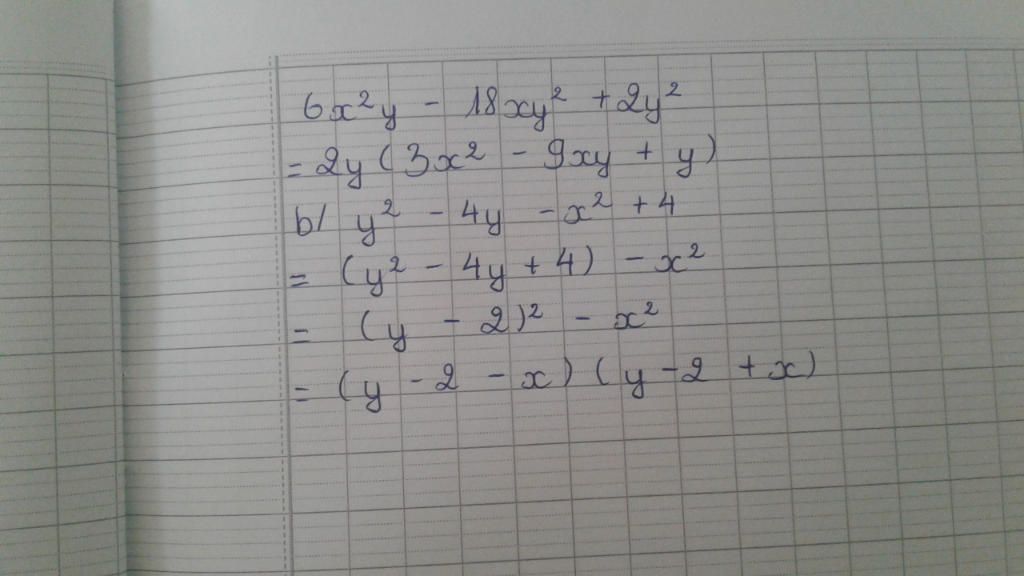 6x²y - 18xy² + 2y²
= 2y (3x² - 9xy + y)
b/ y² - 4y - x² + 4
= (y² - 4y + 4) - x²
= (y - 2)² - x²
= (y - 2 - x) (y - 2 + x)